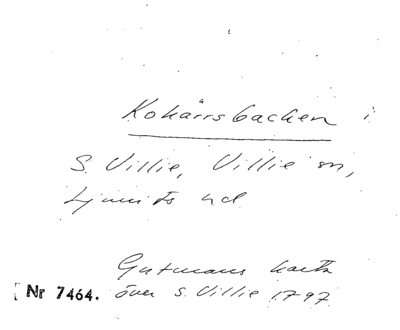 Kohärrsbacken i
S. Villie, Villie sn,
Ljunits hd
Gutmans karta
Nr 7464. över S. Villie 1797